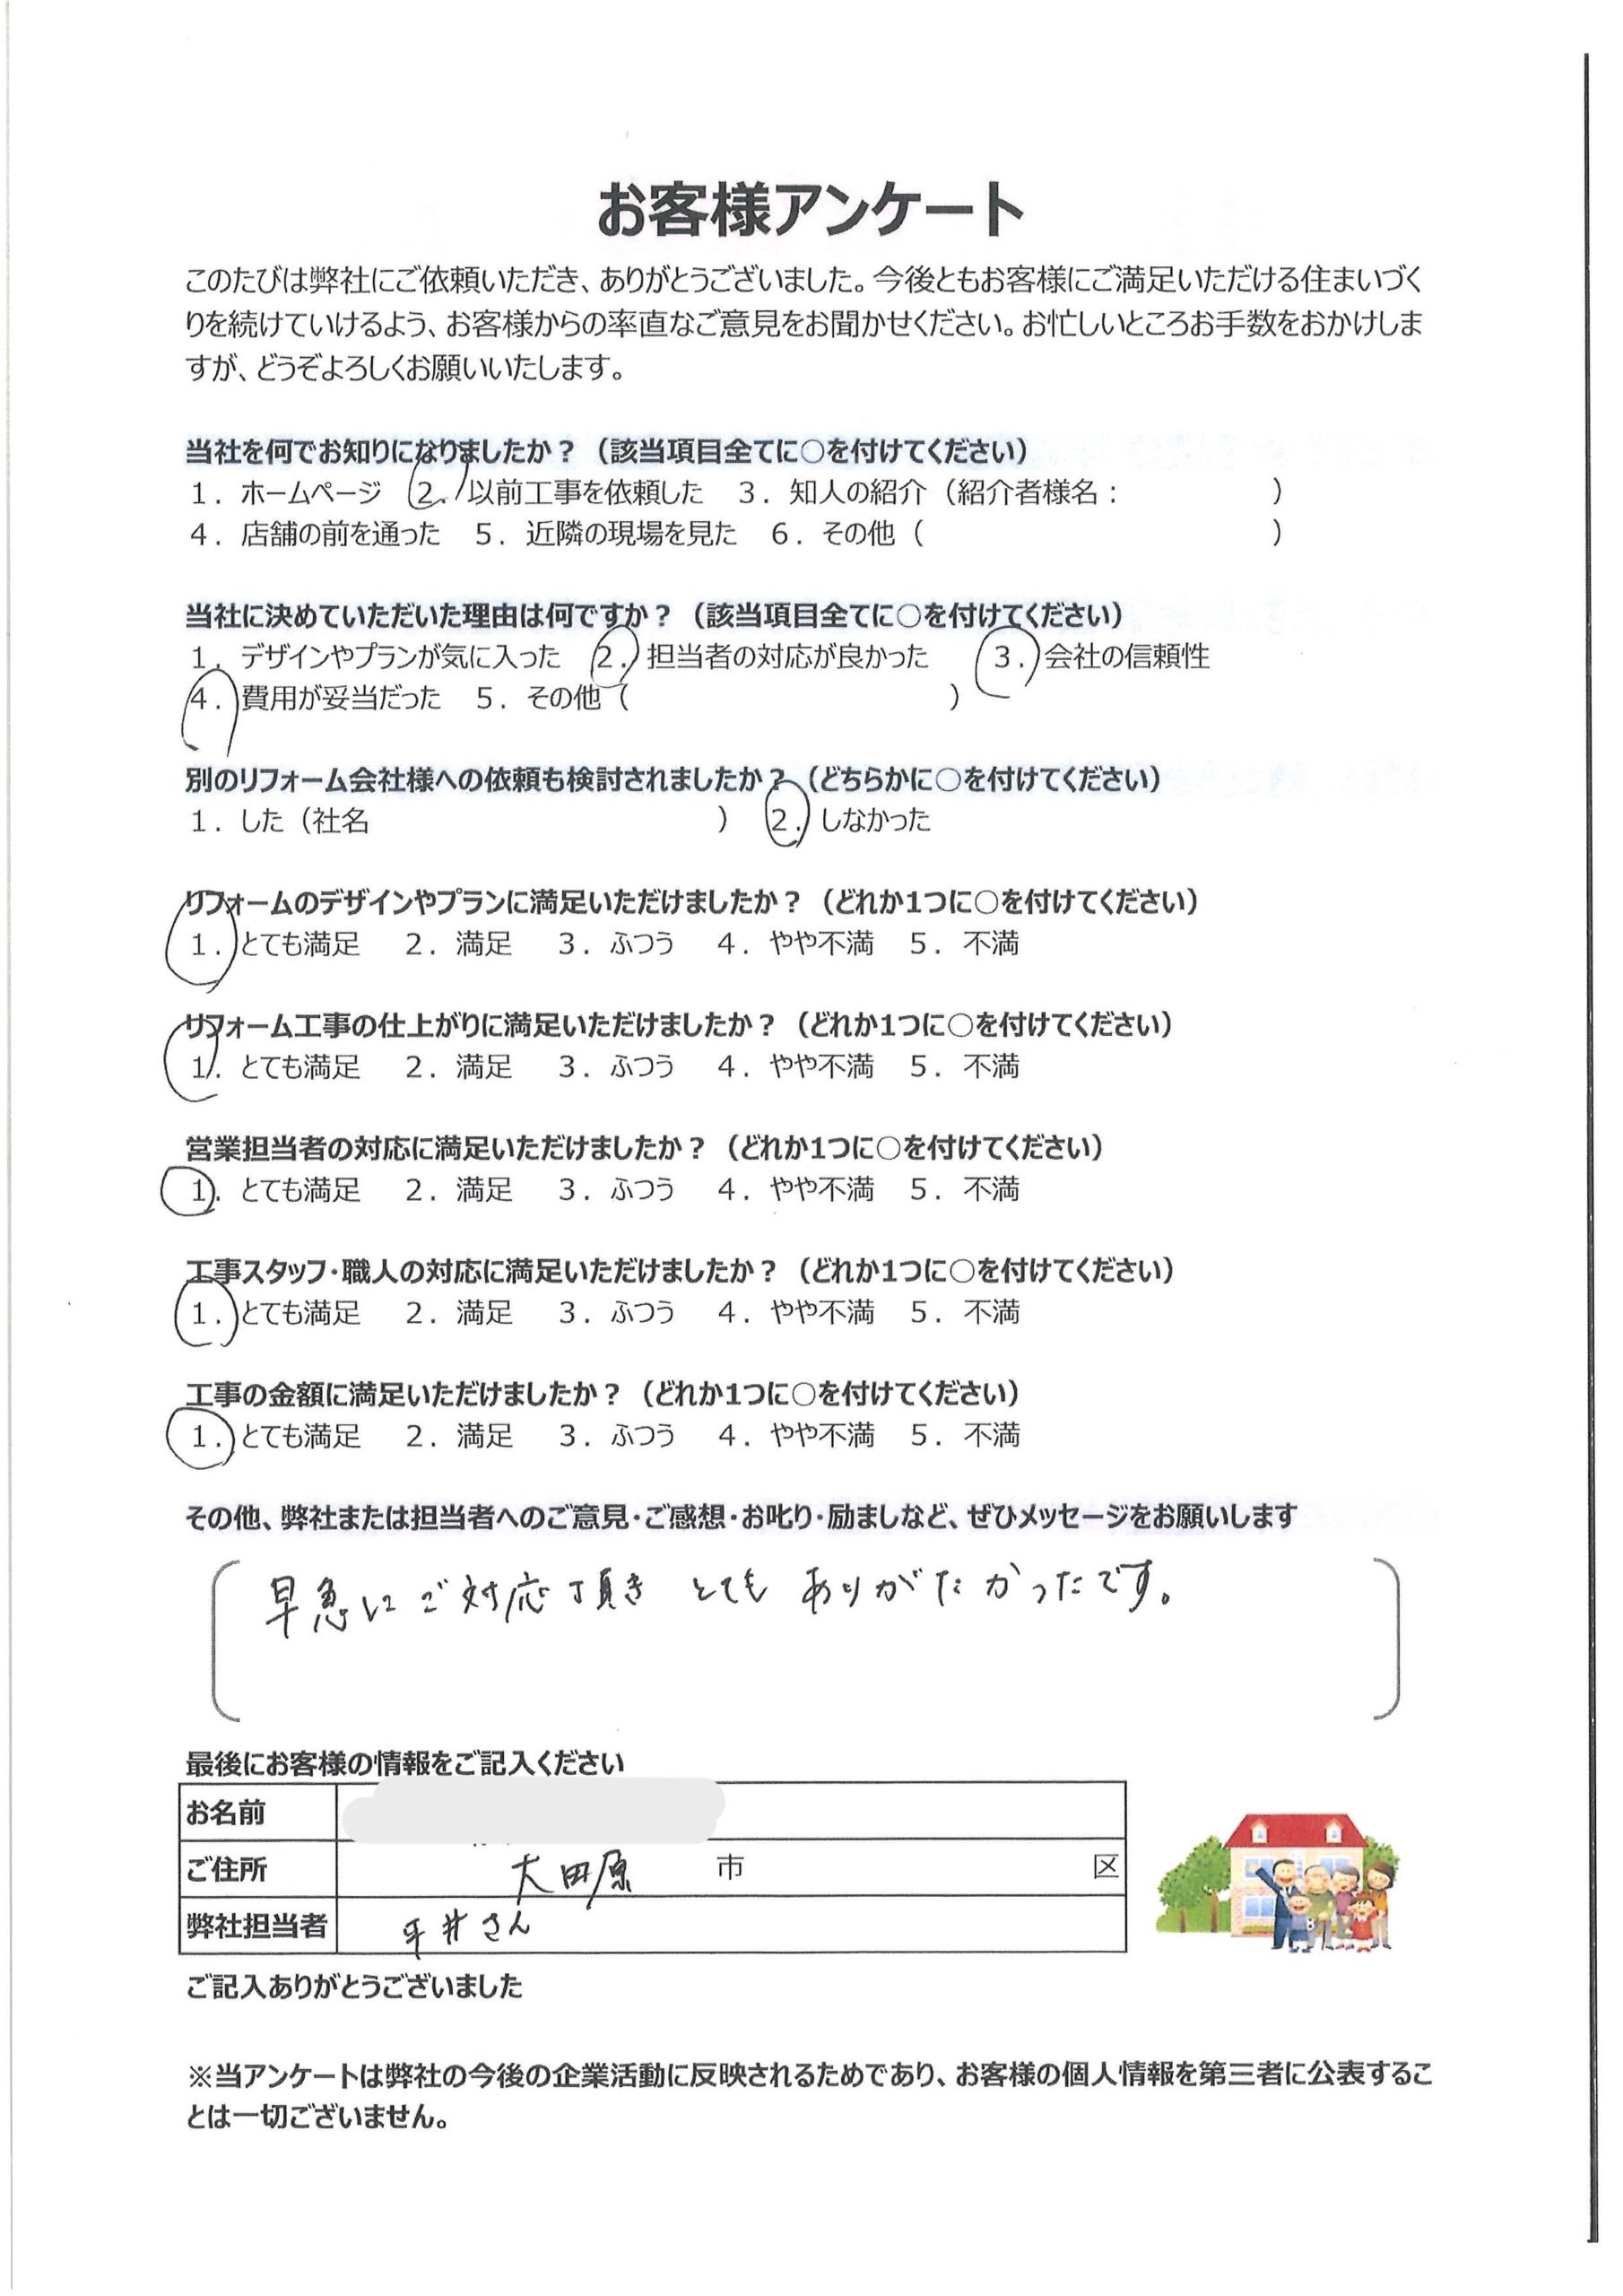 お客様アンケート
このたびは弊社にご依頼いただき、ありがとうございました。今後ともお客様にご満足いただける住まいづく
りを続けていけるよう、お客様からの率直なご意見をお聞かせください。お忙しいところお手数をおかけしま
すが、どうぞよろしくお願いいたします。
当社を何でお知りになりましたか？（該当項目全てに○を付けてください）
１．ホームページ　２．以前工事を依頼した　３．知人の紹介（紹介者様名：　　　　　　）
４．店舗の前を通った　５．近隣の現場を見た　６．その他（　　　　　　　　　　　　　）
当社に決めていただいた理由は何ですか？（該当項目全てに○を付けてください）
１．デザインやプランが気に入った　２．担当者の対応が良かった　３．会社の信頼性
４．費用が妥当だった　５．その他（　　　　　　　　　　　　）
別のリフォーム会社様への依頼も検討されましたか？（どちらかに○を付けてください）
１．した（社名　　　　　　　　　　　　　）　２．しなかった
リフォームのデザインやプランに満足いただけましたか？（どれか1つに○を付けてください）
１．とても満足　２．満足　３．ふつう　４．やや不満　５．不満
リフォーム工事の仕上がりに満足いただけましたか？（どれか1つに○を付けてください）
１．とても満足　２．満足　３．ふつう　４．やや不満　５．不満
営業担当者の対応に満足いただけましたか？（どれか1つに○を付けてください）
１．とても満足　２．満足　３．ふつう　４．やや不満　５．不満
工事スタッフ・職人の対応に満足いただけましたか？（どれか1つに○を付けてください）
１．とても満足　２．満足　３．ふつう　４．やや不満　５．不満
工事の金額に満足いただけましたか？（どれか1つに○を付けてください）
１．とても満足　２．満足　３．ふつう　４．やや不満　５．不満
その他、弊社または担当者へのご意見・ご感想・お叱り・励ましなど、ぜひメッセージをお願いします
早急にご対応頂き とても ありがたかったです。
最後にお客様の情報をご記入ください
お名前
ご住所　大田原　市　区
弊社担当者　平井さん
ご記入ありがとうございました
※当アンケートは弊社の今後の企業活動に反映されるためであり、お客様の個人情報を第三者に公表するこ
とは一切ございません。